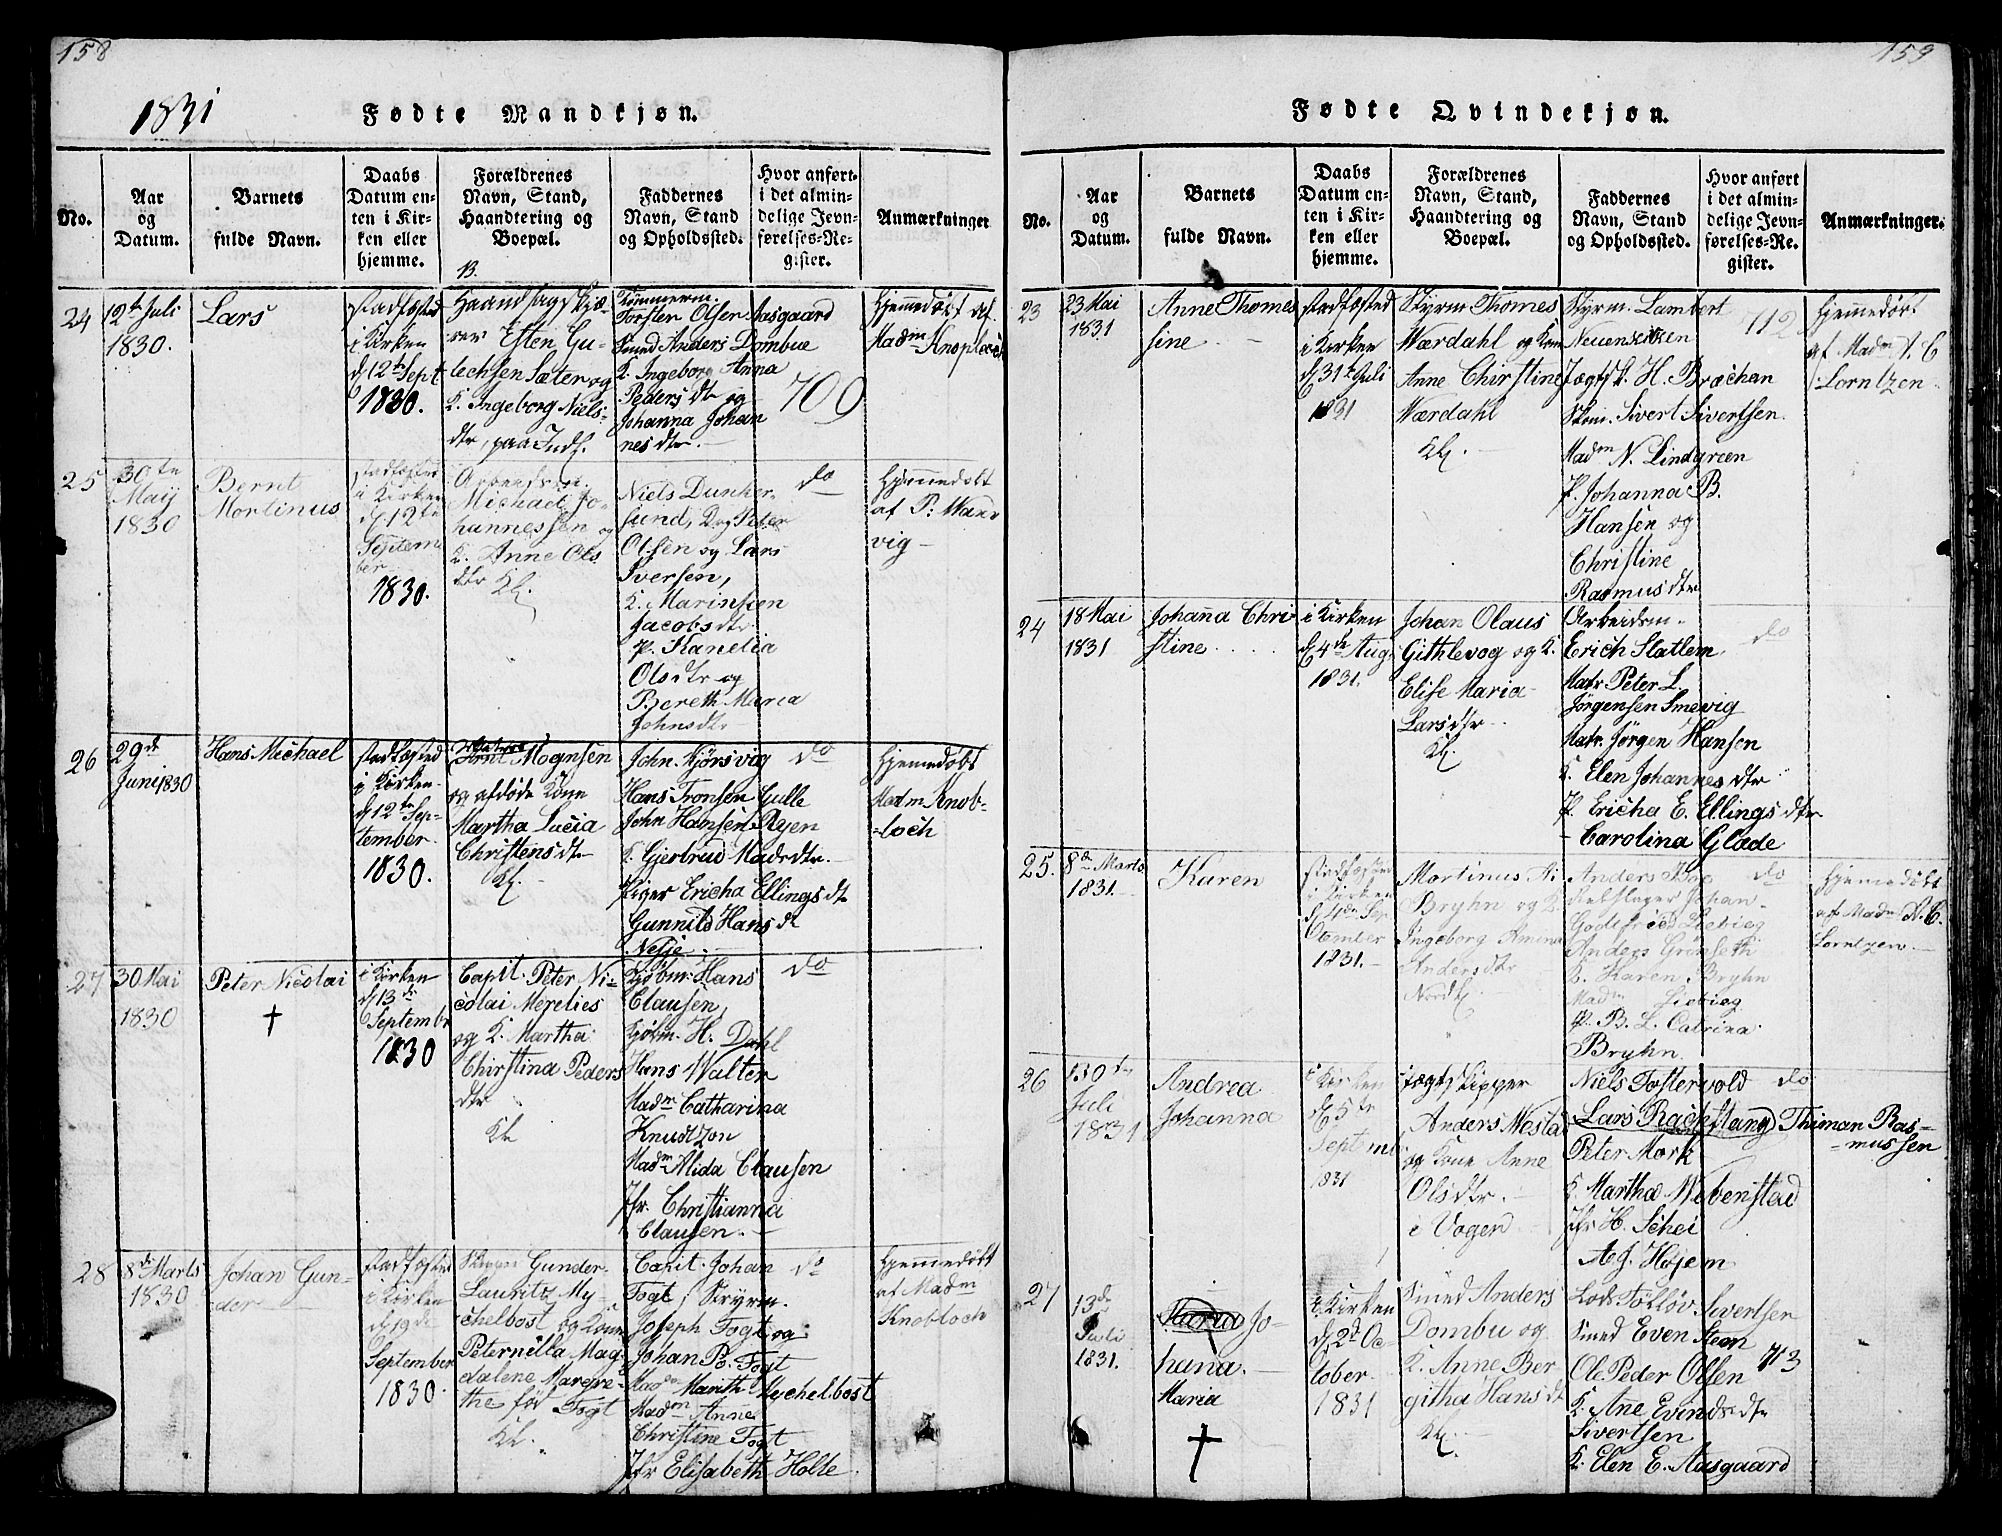 158
1831
Fødte Mandkjøn.
No.
Aar
og
Datum.
Barnets
fulde Navn.
Daabs
Datum en-
ten i Kir-
ken eller
hjemme.
Forældrenes
Navn, Stand,
Haandtering og
Boepæl.
Faddernes
Navn, Stand
og Opholdssted.
Hvor anført
i det almin-
delige Jevn-
førelses-Re-
gister.
Anmærkninger
24
12te Juli
1830.
Lars
stadfæsted
i Kirken
d 12te Sept
1830.
Haandlags
Esten Gu-
Sæter og
K. Ingeborg Niels-
dtr, paa Indl.
Tømmerm.
Torsten Olsen Aasgaard
Smed Anders Dombue
K. Ingeborg Anna
Peders dtr og
Johanna Johan
nesdtr.
709
Hjemmedøbt af
Madm
25
30te
Maij
1830
Bernt
Mortinus
stadfæsted
i Kirken
d 12te
Septem
ber
1830.
Arbeidsm.
Michael Jo-
hannessen og
K. Anne Ols
dtr Kl.
Niels Dunker-
sund, Peter
Olsen og Lars
Iversen,
K. Marin
Jacobsdtr
P. Kanelia
Olsdtr og
Bereth Maria
Johnsdtr
do
Hjemmedøbt
af P: Wand
vig
26
29de
Juni 1830
Hans Michael
stadfæsted
i Kirken
d 12te Sep-
tember.
1830.
Arnt Mognsen
og afdøde Kone
Martha Lucia
Christensdtr
Kl.
John Kjørsvig
Hans Tronsen Gulle
John Hansen Ryen
K. Gjertrud Madsdtr.
Piger Ericha Ellings dtr
Gunnild Hans dr
do
Hjemmedøbt
Madm Knob-
loch
27
30 Mai
1830
Peter Nicolai
†
i Kirken
d 13de
September
1830
Capit. Peter Ni-
colai Merelies
og K. Martha
Christina Peders
dtr
Kl
Kjøbm: Hans
Clausen,
Kjøbm. H. Dahl
Hans Walter
Madm Catharina
Knudtzon
Madm Alida Clausen
Jfr. Christianna
Clausen.
do
28
8de Marts
1830
Johan Gun-
der
stadfæsted
i Kirken
d 19de
September
1830.
Gunder
Lauritz My-
chelbost og Kone
Peternella Mag-
dalene Margre-
the fød Fogt
Kl.
Capit. Johan
Fogt, Styrm.
Joseph Fogt og
Johan P. Fogt
Madm Marith Mychelbost
Madm Anne
Christine Fogt
Jfr Elisabeth Holte
do
Hjemmedøbt
af Madm
Knobloch
159
Fødte Qvindekjøn.
No.
Aar
og
Datum.
Barnets
fulde Navn.
Daabs
Datum en-
ten i Kir-
ken eller
hjemme.
Forældrenes
Navn, Stand,
Haandtering og
Boepæl.
Faddernes
Navn, Stand
og Opholdssted.
Hvor anført
i det almin-
delige Jevn-
førelses-Re-
gister.
Anmærkninger.
23
23 Mai
1831
Anne Thomes
sine
stadfæsted
i Kirken
d 31te Juli
1831
Styrm Thomes
Wærdahl og Kone
Anne Christine
Wærdahl
Kl.
Styrm. Lambert
Neuenschen
Jægtsk. H. Brochan
Skom. Sivert Sivertsen.
Madm N. Lindgreen
P. Johanna B.
Hansen og
Christine
Rasmusdtr
712
Hjemmedøbt
af Madm A. C
Lorntzen
24
18 Mai
1831
Johanna Chri
stine
i Kirken
d 4de Aug.
1831.
Johan Olaus
Githlevog og K.
Elise Maria
Larsdtr
Kl.
Arbeidsm.
Erich Slatlem
Matr Peter L.
Jørgensen Smevig
Matr. Jørgen Hansen
K. Elen Johannes dtr
P. Ericha E. Ellings dtr
Carolina Glade
do
25.
8de Marts
1831.
Karen
stadfæsted
i Kirken
1831.
Mortinus
Bryhn og K
Ingeborg
Andersdtr
Nordl.
Anders
Rebslager Johan-
Godtfried Liebieg
Anders Grønseth
K. Karen Bryhn
Madm Liebieg
P. B. L. Catrina
Bryhn
do
Hjemmedøbt
af Madm A. C.
Lorntzen
26
Juli
1831
Andrea
Johanna
i Kirken
d 5te
Septemb
1831
Jægtskipper
Anders Mostad
og Kone Anne
Olsdtr.
i Vogen
Niels Fostervold
Lars Rachestang
Thiman Ras-
mussen
Peter Mork
K. Martha Mebenstad
Jfr H. Schei
A. J. Højem
do
27
13de
Juli
1831.
Maria Jo-
hana.
Maria
†
i Kirken
d 2de Oc-
tober
1831
Smed Anders
Dombu og
K. Anne Ber
githa Hans dt
Kl.
Lods Tølløv Sivertsen
Smed Even Steen
Ole Peder Olsen
K. Ane Evindsedtr
Sivertsen
K. Elen E. Aasgaard
713